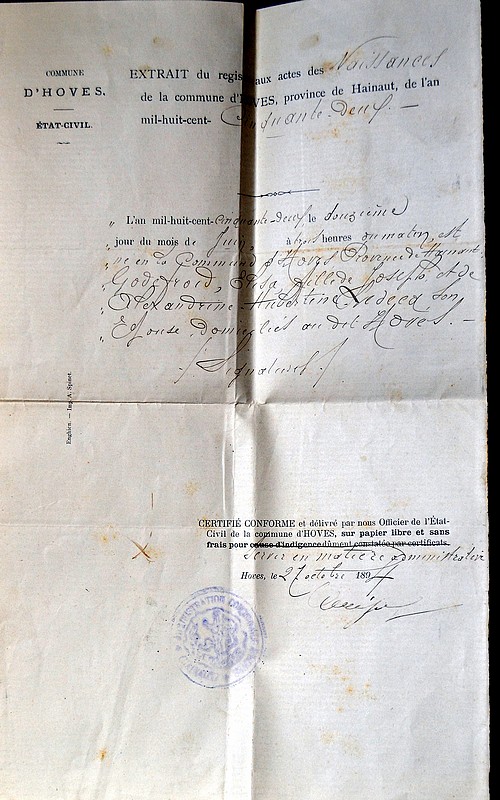 COMMUNE
D'HOVES.
ÉTAT-CIVIL.
EXTRAIT du regis aux actes des Naissances
de la commune d'HOVES, province de Hainaut, de l'an
mil-huit-cent- Cinquante-deux. —
" L'an mil-huit-cent-cinquante-deux le douzième
" jour du mois de Juin, à trois heures du matin est
" né en la Commune d'Hoves Province de Hainaut,
" Godefroid, Elisa, fille de Joseph, et de
" Alexandrine Hubertine Ledecq son
" Epouse domiciliés au dit Hoves. —
/ Signatures /
Enghien. — Imp. A. Spinet.
CERTIFIÉ CONFORME et délivré par nous Officier de l'État-
Civil de la commune d'HOVES, sur papier libre et sans
frais pour cause d'indigence dûment constatée par certificats.
servir en matière administrative
Hoves, le 27 octobre 189
ADMINISTRATION COMMUNALE